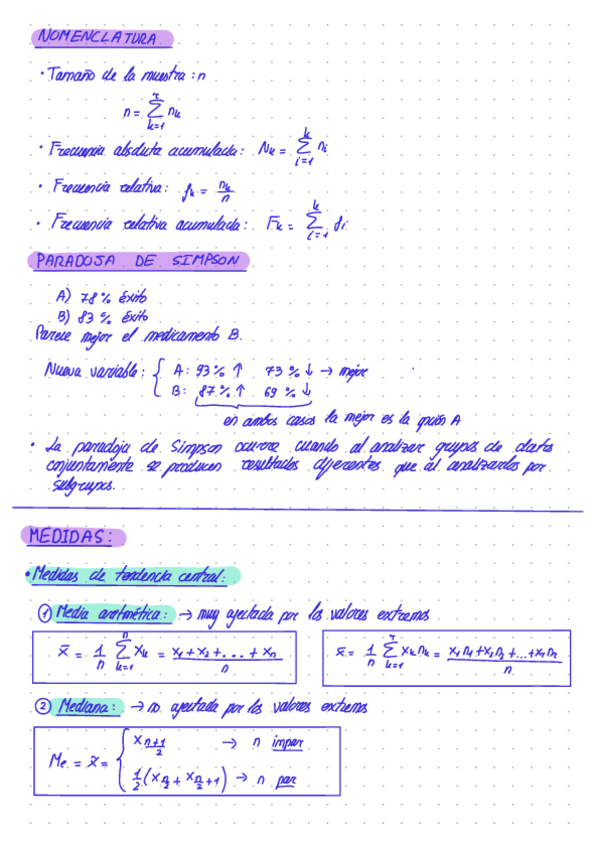 NOMENCLATURA
· Tamaño de la muestra: n
n = Σ_{k=1}^{r} n_k
· Frecuencia absoluta acumulada: N_k = Σ_{i=1}^{k} n_i
· Frecuencia relativa: f_k = n_k / n
· Frecuencia relativa acumulada: F_k = Σ_{i=1}^{k} f_i
PARADOJA DE SIMPSON
A) 78% éxito
B) 83% éxito
Parece mejor el medicamento B.
Nueva variable: { A: 93% ↑ 73% ↓ → mejor
B: 87% ↑ 69% ↓
en ambos casos la mejor es la opción A
· La paradoja de Simpson ocurre cuando al analizar grupos de datos
conjuntamente se producen resultados diferentes que al analizarlos por
subgrupos.
MEDIDAS:
· Medidas de tendencia central:
① Media aritmética: → muy afectada por los valores extremos
x̄ = 1/n Σ_{k=1}^{n} x_k = (x_1 + x_2 + ... + x_n) / n
x̄ = 1/n Σ_{k=1}^{r} x_k n_k = (x_1 n_1 + x_2 n_2 + ... + x_r n_r) / n
② Mediana: → no afectada por los valores extremos
Me = x̃ = { x_{(n+1)/2} → n impar
1/2 (x_{n/2} + x_{n/2+1}) → n par